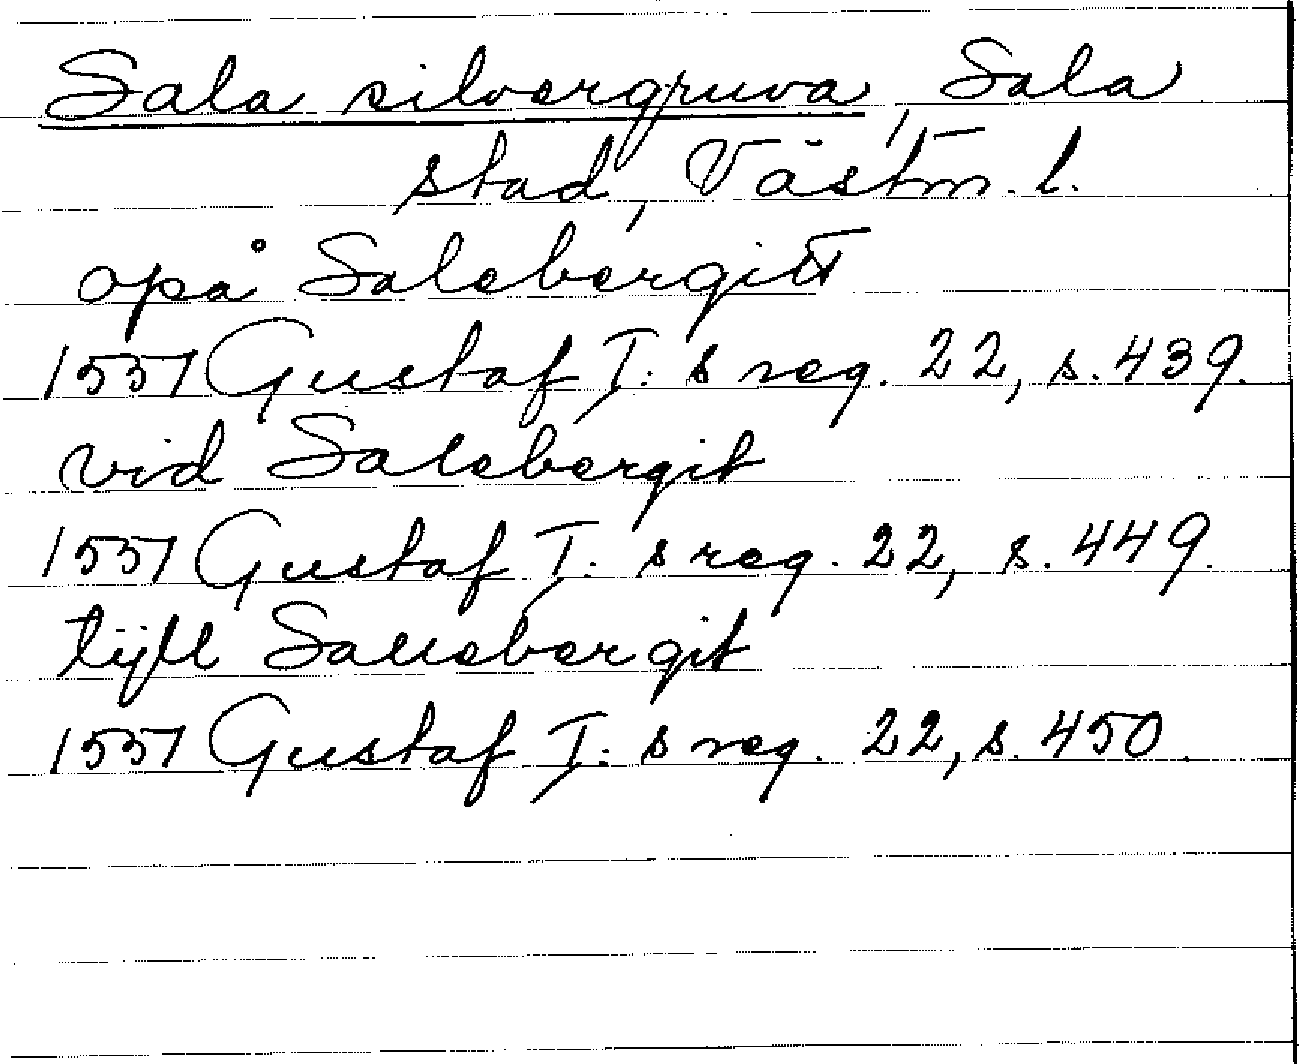 Sala silvergruva, Sala
stad, Västm. l.
opå Salebergitt
1551 Gustaf I:s reg. 22, s. 439.
vid Salebergit
1551 Gustaf I:s reg. 22, s. 449.
tijll Sallebergit
1551 Gustaf I:s reg. 22, s. 450.